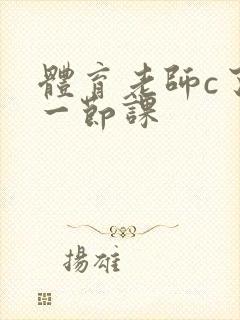 體育老師c了
一節課
揚雄